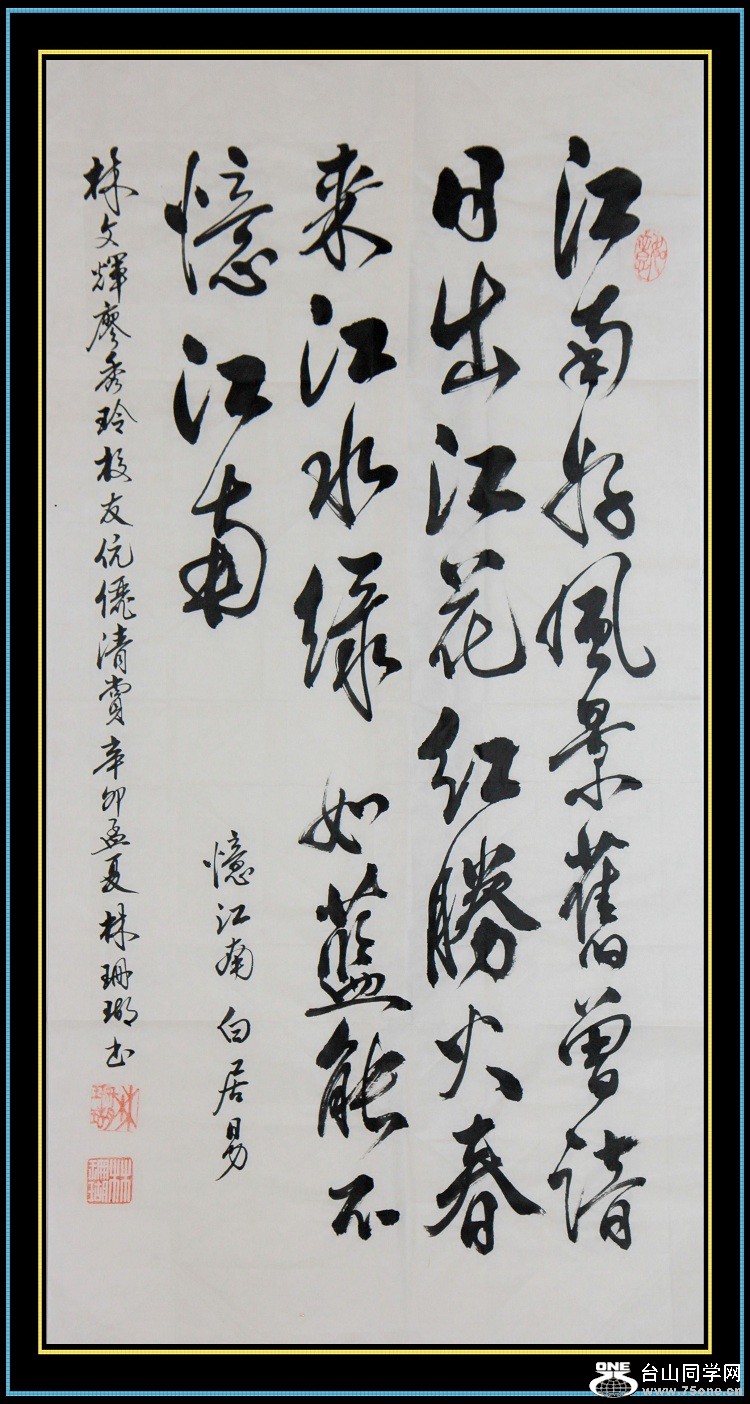 江南好風景舊曽諳
日出江花紅勝火春
来江水綠如藍能不
憶江南
憶江南 白居易
林文輝廖秀玲校友伉儷清賞辛卯孟夏林珊瑚书
林珊瑚
ONE 台山同学网
www.75one.cn